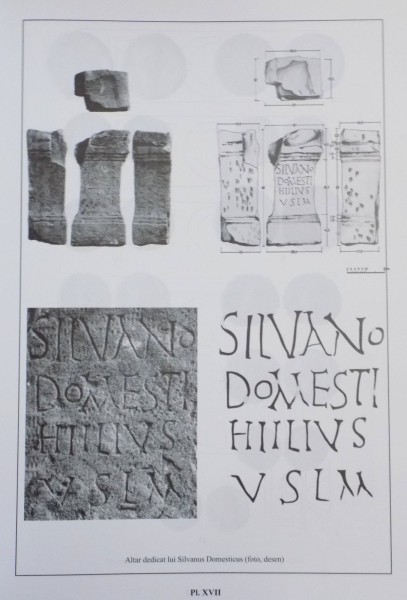 SILVANO
DOMESTI
HIILIVS
VSLM
SILVANO
DOMESTI
HIILIVS
VSLM
SILVANO
DOMESTI
HIILIVS
VSLM
Altar dedicat lui Silvanus Domesticus (foto, desen)
Pl. XVII